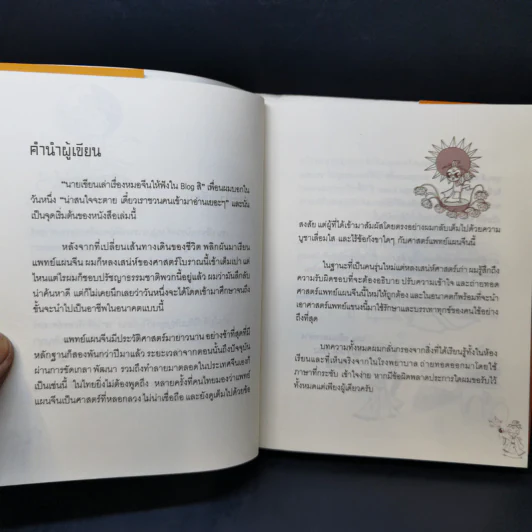 คำนำผู้เขียน
"นายเขียนเล่าเรื่องหมอจีนให้ฟังใน Blog สิ" เพื่อนผมบอกใน
วันหนึ่ง "น่าสนใจจะตาย เดี๋ยวเราชวนคนเข้ามาอ่านเยอะๆ" และนั่น
เป็นจุดเริ่มต้นของหนังสือเล่มนี้
หลังจากที่เปลี่ยนเส้นทางเดินของชีวิต พลิกผันมาเรียน
แพทย์แผนจีน ผมก็หลงเสน่ห์ของศาสตร์โบราณนี้เข้าเต็มเปา แต่
ไหนแต่ไรผมก็ชอบปรัชญาธรรมชาติพวกนี้อยู่แล้ว ผมว่ามันลึกลับ
น่าค้นหาดี แต่ก็ไม่เคยนึกเลยว่าวันหนึ่งจะได้โดดเข้ามาศึกษาจนถึง
ขั้นจะนำไปเป็นอาชีพในอนาคตแบบนี้
แพทย์แผนจีนมีประวัติศาสตร์มายาวนาน อย่างช้าที่สุดที่มี
หลักฐานก็สองพันกว่าปีมาแล้ว ระยะเวลาจากตอนนั้นถึงปัจจุบัน
ผ่านการขัดเกลา พัฒนา รวมถึงทำลายมาตลอดในประเทศจีนเอง
เป็นเช่นนี้ ในไทยยิ่งไม่ต้องพูดถึง หลายครั้งที่คนไทยมองว่าแพทย์
แผนจีนเป็นศาสตร์ที่หลอกลวง ไม่น่าเชื่อถือ และยังดูเต็มไปด้วยข้อ
สงสัย แต่ผู้ที่ได้เข้ามาสัมผัสโดยตรงอย่างผมกลับเต็มไปด้วยความ
บูชาเลื่อมใส และไร้ข้อกังขาใดๆ กับศาสตร์แพทย์แผนจีนนี้
ในฐานะที่เป็นคนรุ่นใหม่แต่หลงเสน่ห์ศาสตร์เก่า ผมรู้สึกถึง
ความรับผิดชอบที่จะต้องอธิบาย ปรับความเข้าใจ และถ่ายทอด
ศาสตร์แพทย์แผนจีนนี้ใหม่ให้ถูกต้อง และในอนาคตก็พร้อมที่จะนำ
เอาศาสตร์แพทย์แขนงนี้มาใช้รักษาและบรรเทาทุกข์ของคนไข้อย่าง
ถึงที่สุด
บทความทั้งหมดผมกลั่นกรองจากสิ่งที่ได้เรียนรู้ทั้งในห้อง
เรียนและที่เห็นจริงจากในโรงพยาบาล ถ่ายทอดออกมาโดยใช้
ภาษาที่กระชับ เข้าใจง่าย หากมีข้อผิดพลาดประการใดผมขอรับไว้
ทั้งหมดแต่เพียงผู้เดียวครับ